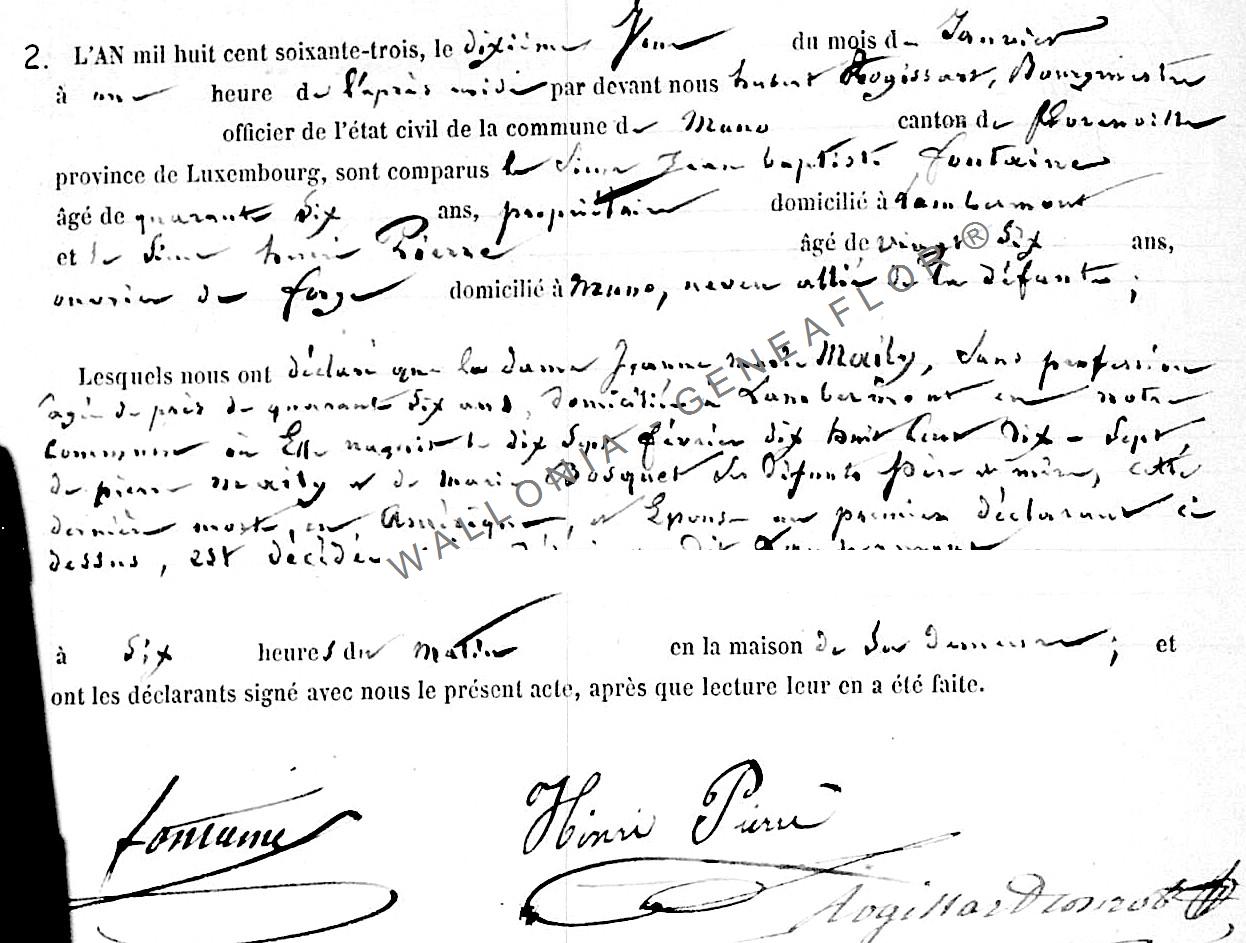 2. L'AN mil huit cent soixante-trois, le dixième jour du mois de Janvier
à une heure de l'après midi par devant nous hubert Rogissart, Bourgmestre
officier de l'état civil de la commune de Muno canton de florenville
province de Luxembourg, sont comparus le Sieur Jean baptiste fontaine
âgé de quarante six ans, propriétaire domicilié à Lambermont
et le Sieur henri Pierre âgé de vingt Six ans,
ouvrier de forge domicilié à Muno, neveu allié de la défunte ;
Lesquels nous ont déclaré que la dame Jeanne marie Maily, Sans profession
agée de près de quarante six ans, domiciliée à Lambermont en notre
commune où Elle naquit le dix Sept février dix huit Cent Dix-Sept,
de pierre Maily et de Marie Bosquet Ses Défunts père et mère, cette
dernière morte, en Amérique, et Epouse au premier déclarant ci
dessus, est décédée dit Lambermont
à Six heures du Matin en la maison de Sa Demeure ; et
ont les déclarants signé avec nous le présent acte, après que lecture leur en a été faite.
WALLONIA GENEAFLOR ®
fontaine Hinri Pierre
Rogissart